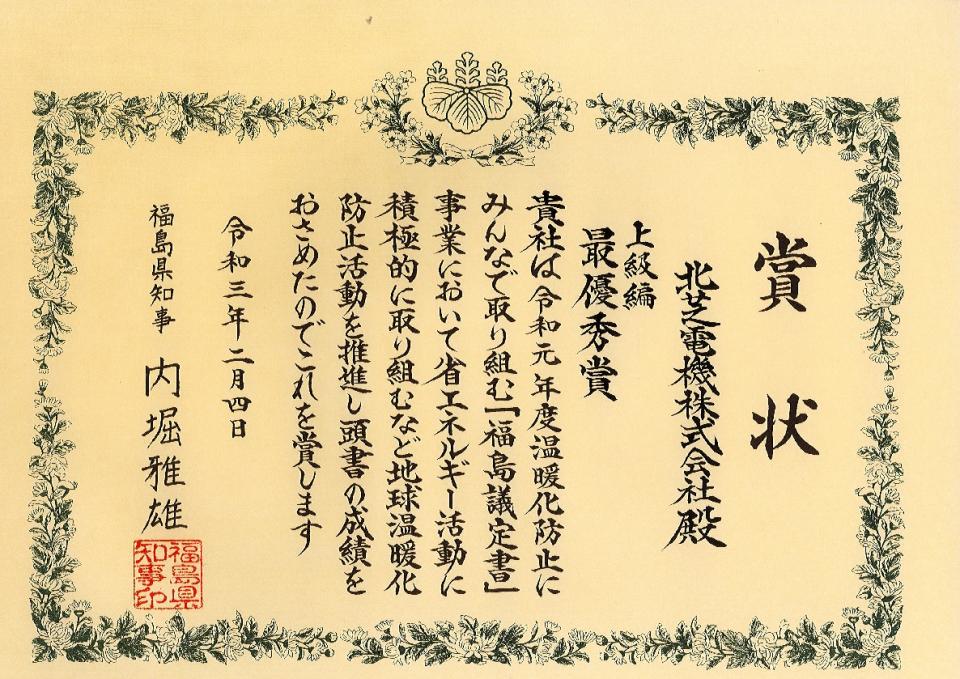 賞状
北芝電機株式会社殿
上級編
最優秀賞
貴社は令和元年度温暖化防止に
みんなで取り組む「福島議定書」
事業において省エネルギー活動に
積極的に取り組むなど地球温暖化
防止活動を推進し頭書の成績を
おさめたのでこれを賞します
令和三年二月四日
福島県知事 内堀雅雄
福島県
知事印